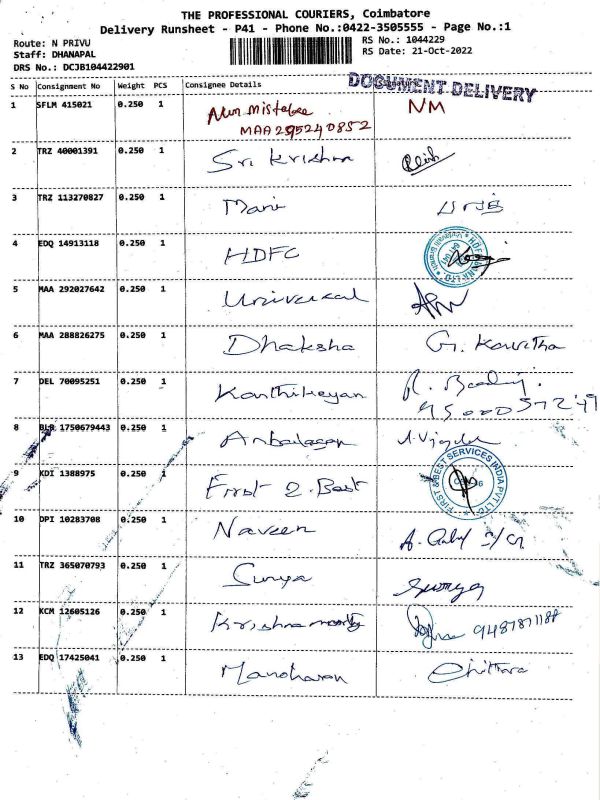 THE PROFESSIONAL COURIERS, Coimbatore
Delivery Runsheet - P41 - Phone No.:0422-3505555 - Page No.:1
Route: N PRIVU
RS No.: 1044229
Staff: DHANAPAL
RS Date: 21-Oct-2022
DRS No.: DCJB104422901
S No Consignment No Weight PCS Consignee Details Signature
DOCUMENT DELIVERY
1 SFLM 415021 0.250 1 NM
MAA 295240852
2 TRZ 40001391 0.250 1 Sri Krishna
3 TRZ 113270827 0.250 1 Mani
4 EDQ 14913118 0.250 1 HDFC
5 MAA 292027642 0.250 1 Universal
6 MAA 288826275 0.250 1 Dhaksha G. Kavitha
7 DEL 70095251 0.250 1 Karthikeyan
8 BLR 1750679443 0.250 1 Anbalagan
9 KDI 1388975 0.250 1 First 2. Best
FIRST & BEST SERVICES INDIA PVT LTD
10 DPI 10283708 0.250 1 Naveen
11 TRZ 365070793 0.250 1 Surya
12 KCM 12605126 0.250 1 Krishnamoorthy
13 EDQ 17425041 0.250 1 Manoharan Chithra